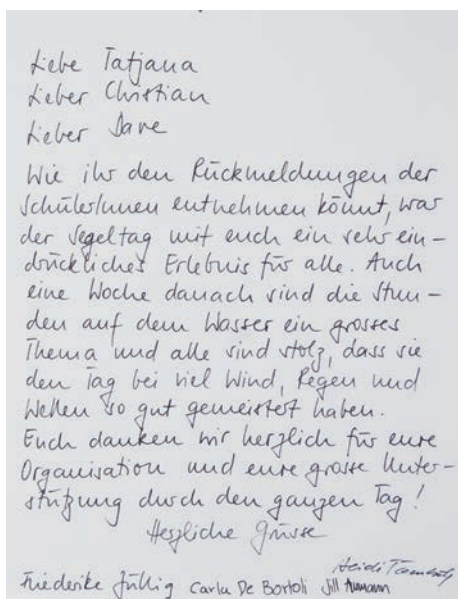 Liebe Tatjana
Lieber Christian
Lieber Dave
Wie ihr den Rückmeldungen der
SchülerInnen entnehmen könnt, war
der Segeltag mit euch ein sehr ein-
drückliches Erlebnis für alle. Auch
eine Woche danach sind die Stun-
den auf dem Wasser ein grosses
Thema und alle sind stolz, dass sie
den Tag bei viel Wind, Regen und
Wellen so gut gemeistert haben.
Euch danken wir herzlich für eure
Organisation und eure grosse Unter-
stützung durch den ganzen Tag!
Herzliche Grüsse
Heidi
Friederike Carla De Bortoli Jill